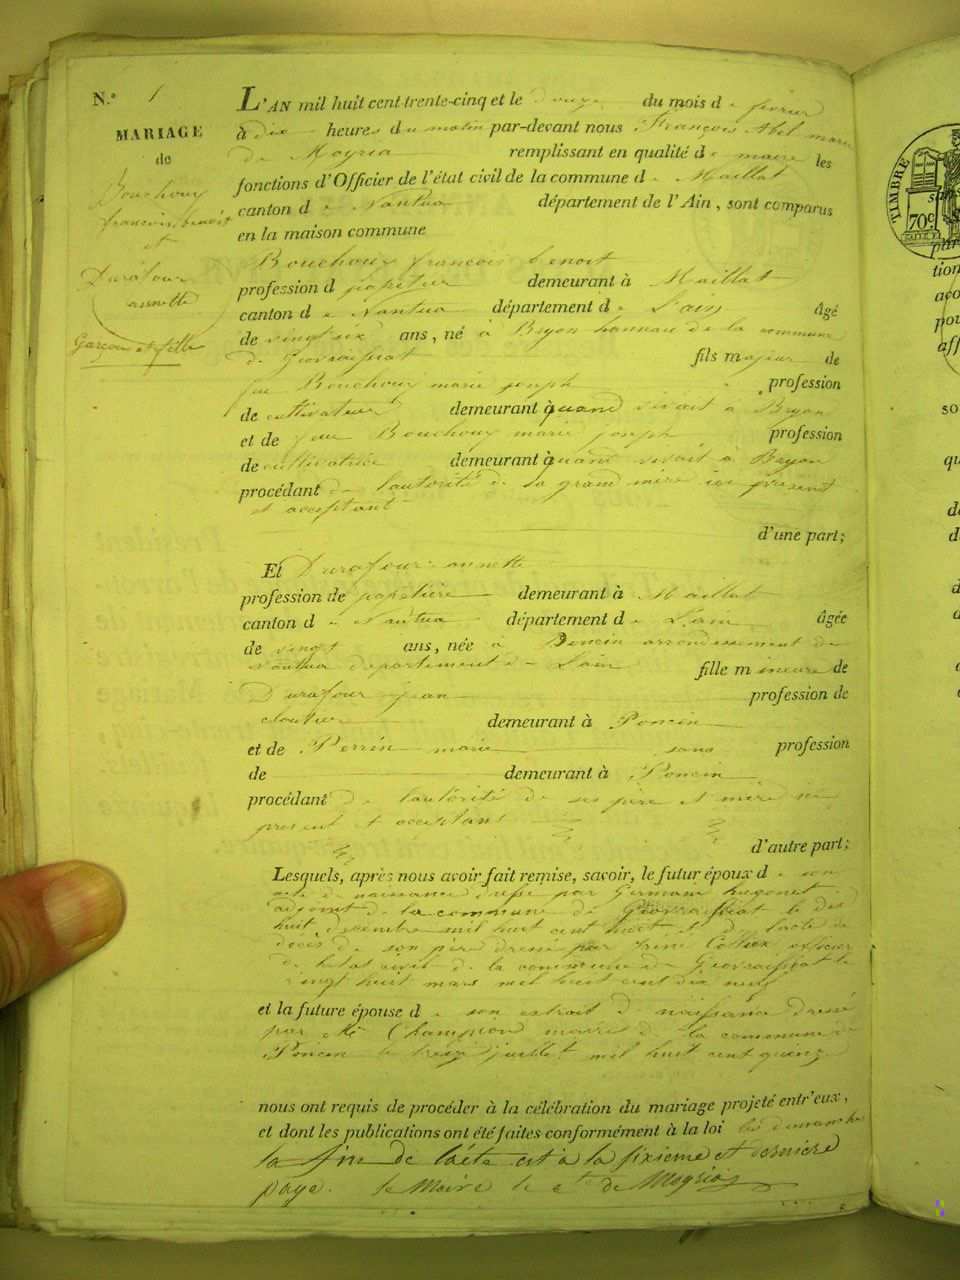 N.° 1
MARIAGE
de
Bouchoux
françois benoit
et
Durafour
annette
Garçon et fille
L'AN mil huit cent trente-cinq et le douze du mois de fevrier
à dix heures du matin par-devant nous François Abel marie
de Moyria remplissant en qualité de maire les
fonctions d'Officier de l'état civil de la commune de Maillat
canton de Nantua département de l'Ain, sont comparus
en la maison commune
Bouchoux françois benoit
profession de papetier demeurant à Maillat
canton de Nantua département de L'ain Agé
de vingt six ans, né à Bryon hameau de la commune
de Geovraissiat fils majeur de
feu Bouchoux marie joseph profession
de cultivateur demeurant à quand vivait à Bryon
et de feue Bouchoux marie joseph profession
de cultivatrice demeurant à quand vivait à Bryon
procédant de l'autorité de sa grand mère ici présent
et acceptant
d'une part;
Et Durafour annette
profession de papetière demeurant à Maillat
canton de Nantua département de L'ain âgée
de vingt ans, née à Poncin arrondissement de
Nantua departement de L'ain fille mineure de
Durafour jean profession de
cloutier demeurant à Poncin
et de Perrin marie sans profession
de demeurant à Poncin
procédant de l'autorité de ses père et mère
present et acceptans
d'autre part;
Lesquels, après nous avoir fait remise, savoir, le futur époux de son
acte de naissance dressé par Germain hugonet
adjoint de la commune de Geovraissiat le dix
huit decembre mil huit cent huit et de l'acte de
décès de son père dressé par officier
de l'état civil de la commune de Geovraissiat le
vingt huit mars mil huit cent dix neuf
et la future épouse de son extrait de naissance dressé
par Mr Champion maire de la commune de
Poncin le treize juillet mil huit cent quinze
nous ont requis de procéder à la célébration du mariage projeté entr'eux,
et dont les publications ont été faites conformément à la loi les dimanche
la fin de l'acte est à la sixieme et derniere
page. le Maire le cte de Moyria
TIMBRE
70c